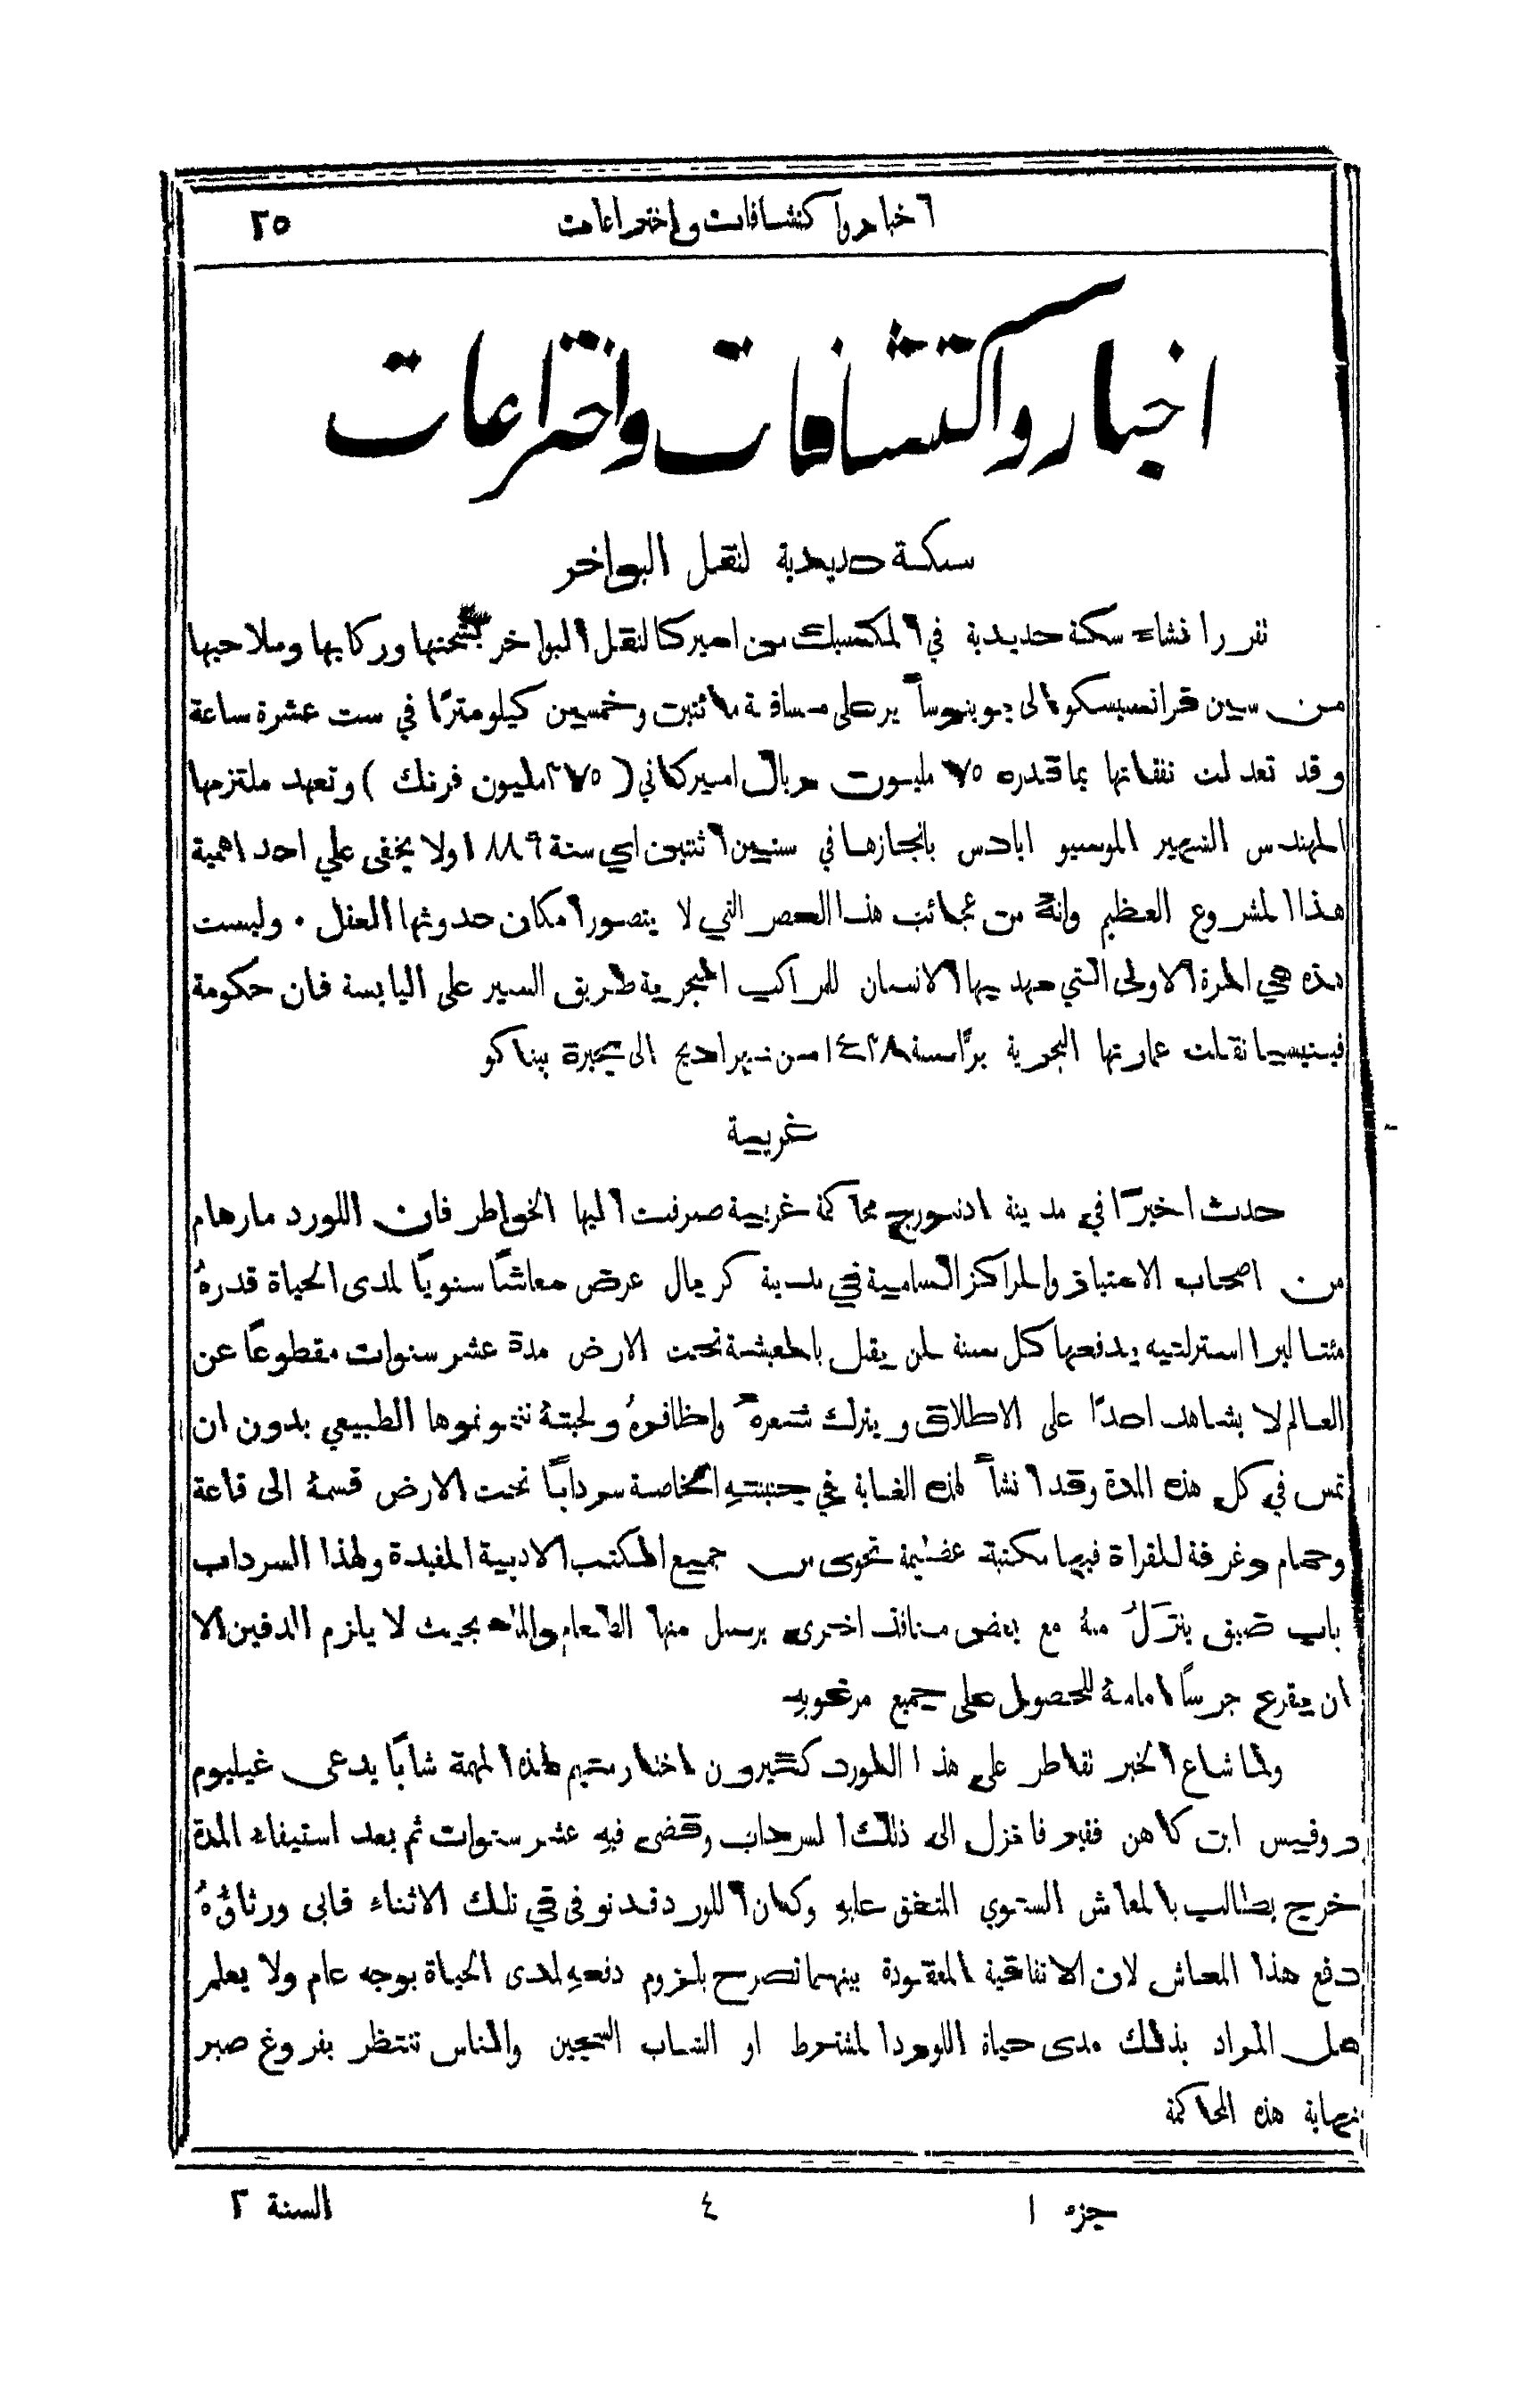 اخبار واكتشافات واختراعات ٢٥
اخبار واكتشافات واختراعات
سكة حديدية لنقل البواخر
نقرر انشاء سكة حديدية في المكسيك من اميركا لنقل البواخر بشحنها وركابها وملاحيها
من سين فرانسيسكو الى يوينوسا ير على مسافة مائتين وخمسين كيلومترًا في ست عشرة ساعة
وقد تعدلت نفقاتها بما قدره ٧٥ مليون ريال اميركاني (٣٧٥ مليون فرنك) وتعهد ملتزمها
المهندس الشهير الموسيو ابادس بانجازها في سنتين اثنتين اي سنة ١٨٨٩ ولا يخفى علي احد اهمية
هذا المشروع العظيم وانهُ من عجائب هذا العصر التي لا يتصور امكان حدوثها العقل . وليست
هذه هي المرة الاولى التي مهد بها الانسان للمراكب البحرية طريق السير على اليابسة فان حكومة
فينيسيا نقلت عمارتها البحرية برًّا سنة ١٤٣٨ من نهر اديج الى بحيرة بيناكو
غريبة
حدث اخيرًا في مدينة ادنبورج محاكمة غريبة صرفت اليها الخواطر فان اللورد مارهام
من اصحاب الاعتبار والمراكز السامية في مدينة كريمال عرض معاشًا سنويًا لمدى الحياة قدرهُ
مئتا ليرا استرلنيه يدفعها كل سنة لمن يقبل بالمعيشة تحت الارض مدة عشر سنوات مقطوعًا عن
العالم لا يشاهد احدًا على الاطلاق ويترك شعرهُ واظافرهُ ولحيتهُ تنمو نموها الطبيعي بدون ان
تمس في كل هذه المدة وقد انشأ لهذه الغاية في جنينتهِ الخاصة سردابًا تحت الارض قسمهُ الى قاعة
وحمام وغرفة للقراة فيها مكتبة عظيمة تحوي من جميع الكتب الادبية المفيدة ولهذا السرداب
باب ضيق ينزلُ منهُ مع بعض منافذ اخرى يرسل منها الطعام والماء بحيث لا يلزم الدفين الا
ان يقرع جرسًا امامهُ للحصول على جميع مرغوبهِ
ولما شاع الخبر تقاطر على هذا اللورد كثيرون اختار منهم لهذه المهمة شابًا يدعى غيليوم
دروفيس ابن كاهن فقير فانزل الى ذلك السرداب وقضى فيهِ عشر سنوات ثم بعد استيفاء المدة
خرج يطالب بالمعاش السنوي المتفق عليهِ وكان اللورد قد توفي في تلك الاثناء فابى ورثاؤُهُ
دفع هذا المعاش لان الاتفاقية المعقودة بينهما تصرح بلزوم دفعهِ لمدى الحياة بوجه عام ولا يعلم
هل المراد بذلك مدى حياة اللورد المشترط او الشاب السجين والناس تنتظر بفروغ صبر
نهاية هذه المحاكمة
جزء ١ ٤ السنة ٢